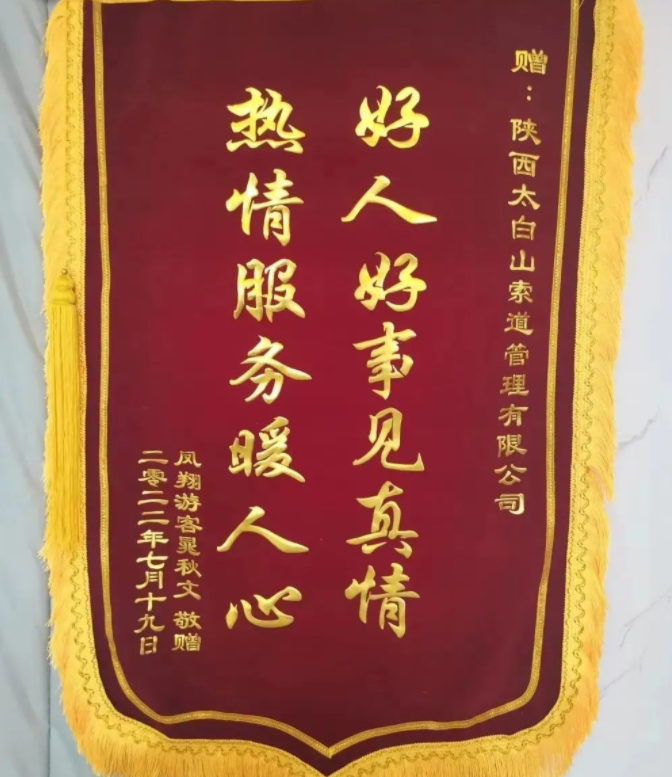 赠：陕西太白山索道管理有限公司
好人好事见真情
热情服务暖人心
凤翔游客晁秋文 敬赠
二零二二年七月十九日